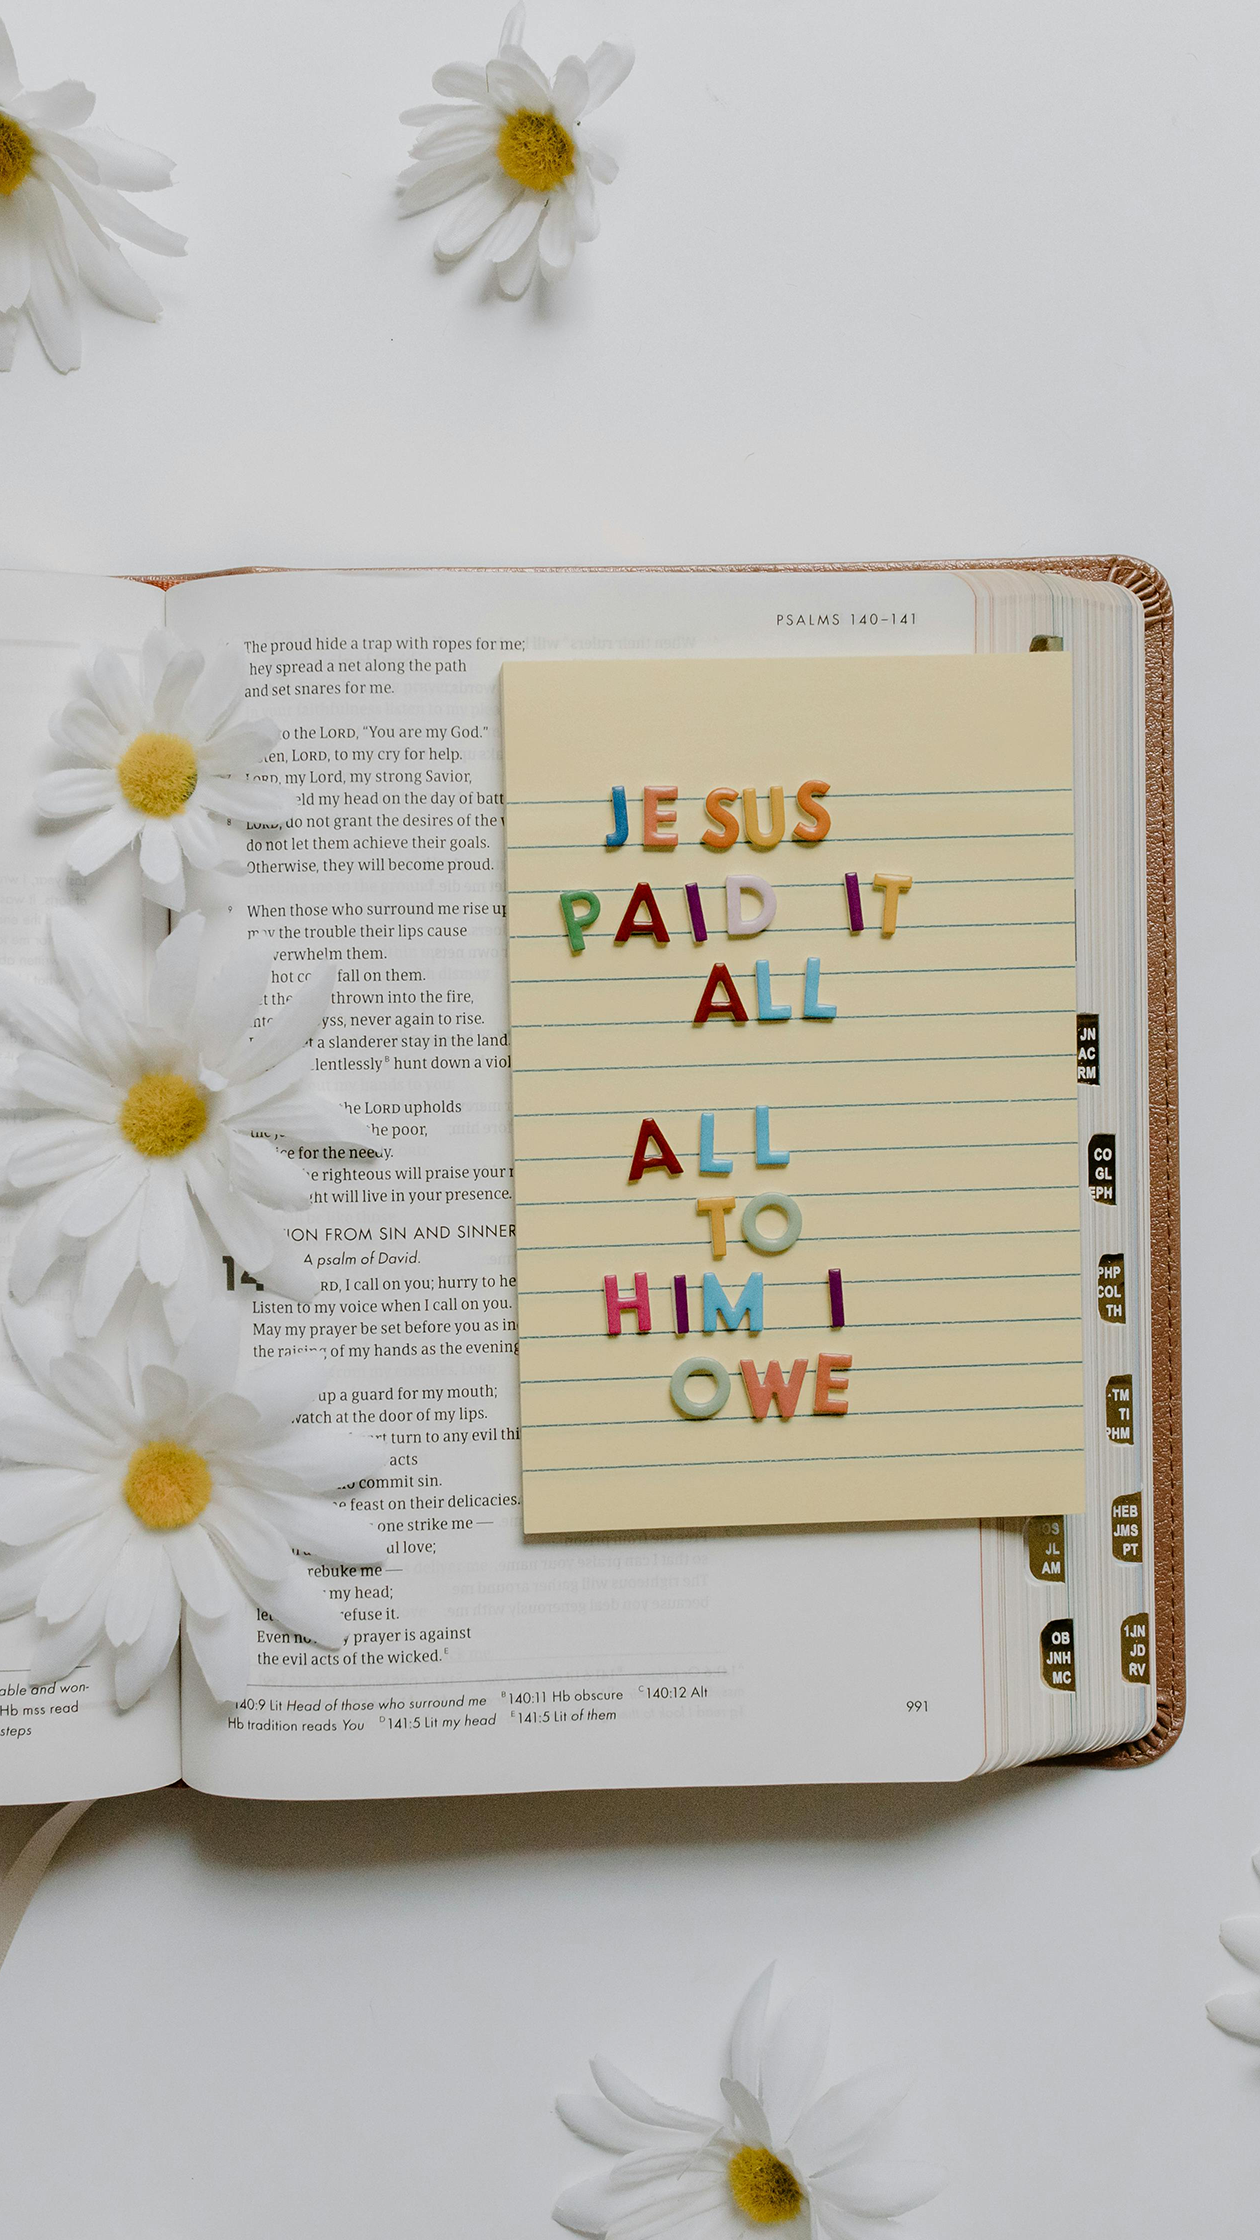 PSALMS 140–141
The proud hide a trap with ropes for me;
hey spread a net along the path
and set snares for me.
to the LORD, “You are my God.”
LORD, to my cry for help.
LORD, my Lord, my strong Savior,
my head on the day of
8 LORD, do not grant the desires of the
do not let them achieve their goals.
Otherwise, they will become proud.
9 When those who surround me rise up
may the trouble their lips cause
verwhelm them.
hot fall on them.
thrown into the fire,
never again to rise.
a slanderer stay in the land
lentlessly B hunt down a
the LORD upholds
the poor,
for the needy.
righteous will praise your
will live in your presence.
FROM SIN AND SINNER
A psalm of David.
14
I call on you; hurry to
Listen to my voice when I call on you.
May my prayer be set before you as
the raising of my hands as the evening
up a guard for my mouth;
watch at the door of my lips.
turn to any evil
acts
commit sin.
feast on their delicacies.
one strike me —
love;
rebuke me —
my head;
let refuse it.
Even prayer is against
the evil acts of the wicked. E
140:9 Lit Head of those who surround me B 140:11 Hb obscure C 140:12 Alt
Hb tradition reads You D 141:5 Lit my head E 141:5 Lit of them
991
able and won-
Hb mss read
steps
JESUS
PAID IT
ALL
ALL
TO
HIM I
OWE
JN
AC
RM
CO
GL
EPH
PHP
COL
TH
TM
TI
PHM
HEB
JMS
PT
1JN
JD
RV
JL
AM
OB
JNH
MC